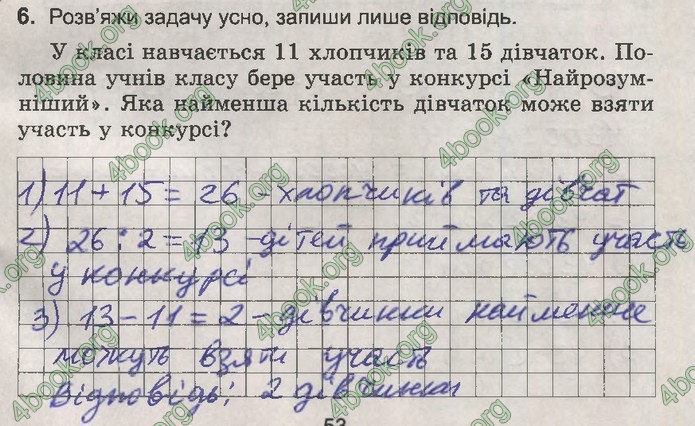 6. Розв'яжи задачу усно, запиши лише відповідь.
У класі навчається 11 хлопчиків та 15 дівчаток. По-
ловина учнів класу бере участь у конкурсі «Найрозум-
ніший». Яка найменша кількість дівчаток може взяти
участь у конкурсі?
1) 11 + 15 = 26 - хлопчиків та дівчат
2) 26 : 2 = 13 - дітей приймають участь
у конкурсі
3) 13 - 11 = 2 - дівчинки найменше
можуть взяти участь
Відповідь: 2 дівчинки
53
4book.org